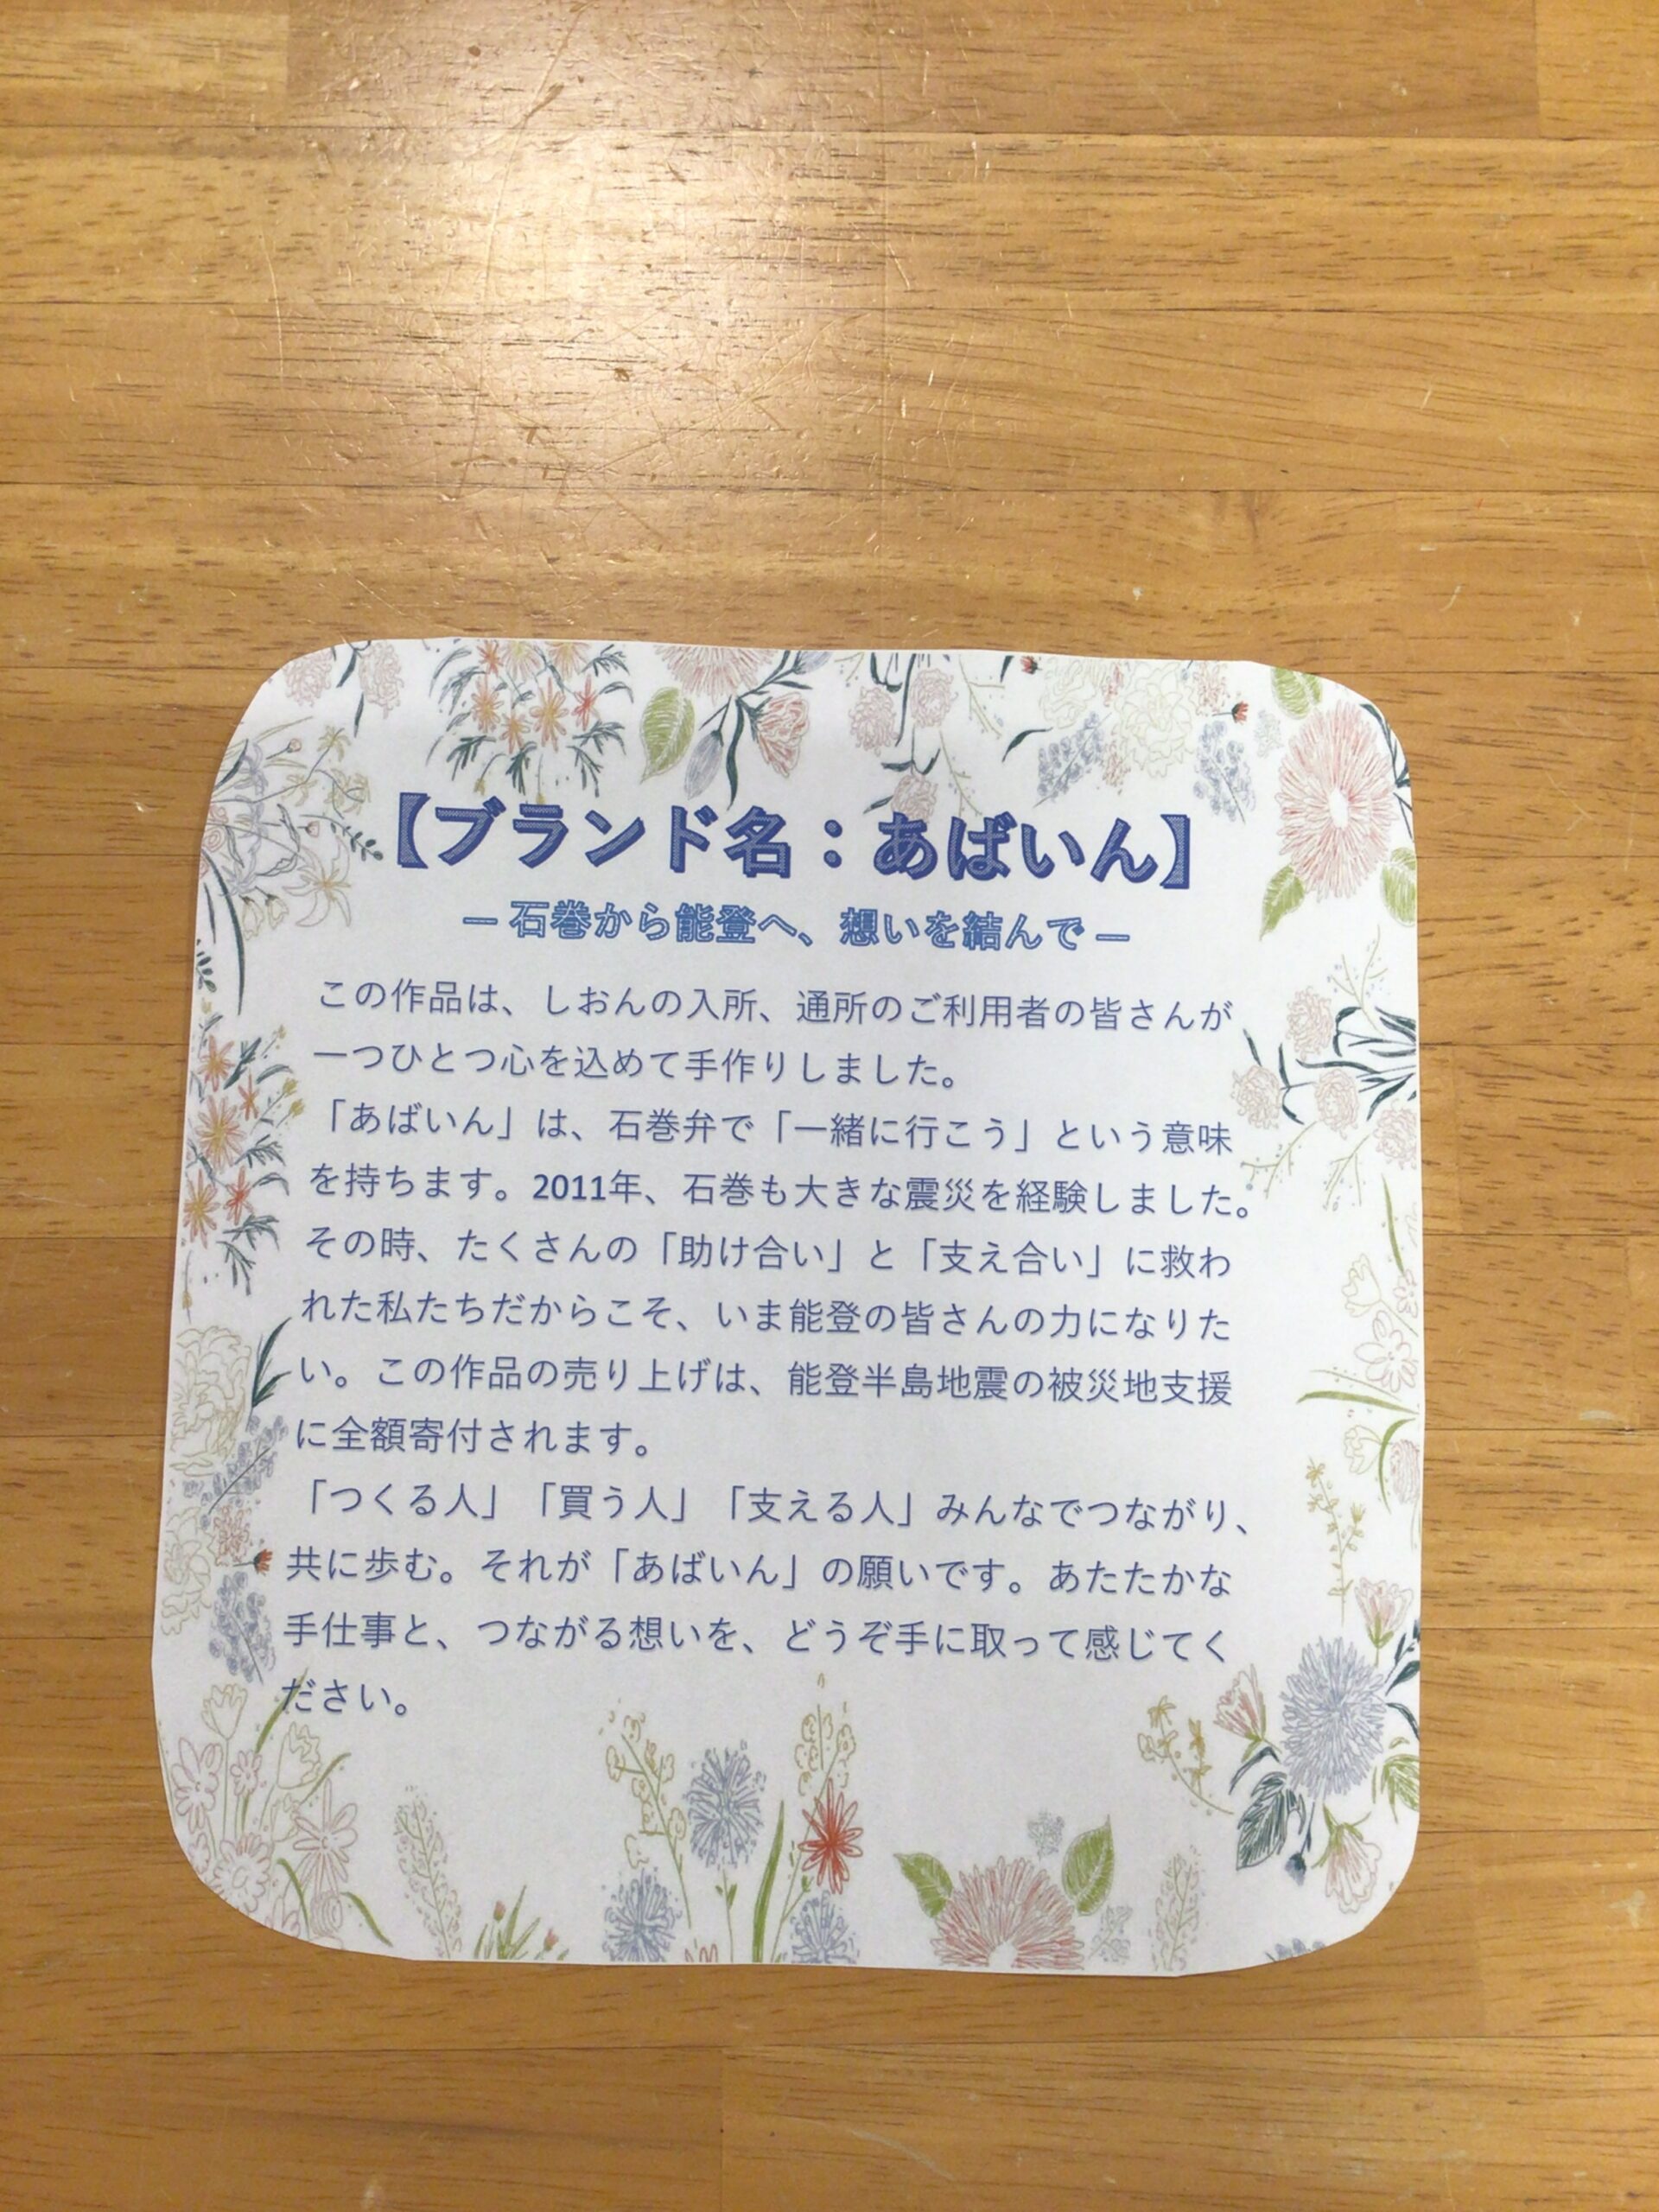 【ブランド名：あばいん】
― 石巻から能登へ、想いを結んで ―
この作品は、しおんの入所、通所のご利用者の皆さんが
一つひとつ心を込めて手作りしました。
「あばいん」は、石巻弁で「一緒に行こう」という意味
を持ちます。2011年、石巻も大きな震災を経験しました。
その時、たくさんの「助け合い」と「支え合い」に救わ
れた私たちだからこそ、いま能登の皆さんの力になりた
い。この作品の売り上げは、能登半島地震の被災地支援
に全額寄付されます。
「つくる人」「買う人」「支える人」みんなでつながり、
共に歩む。それが「あばいん」の願いです。あたたかな
手仕事と、つながる想いを、どうぞ手に取って感じてく
ださい。